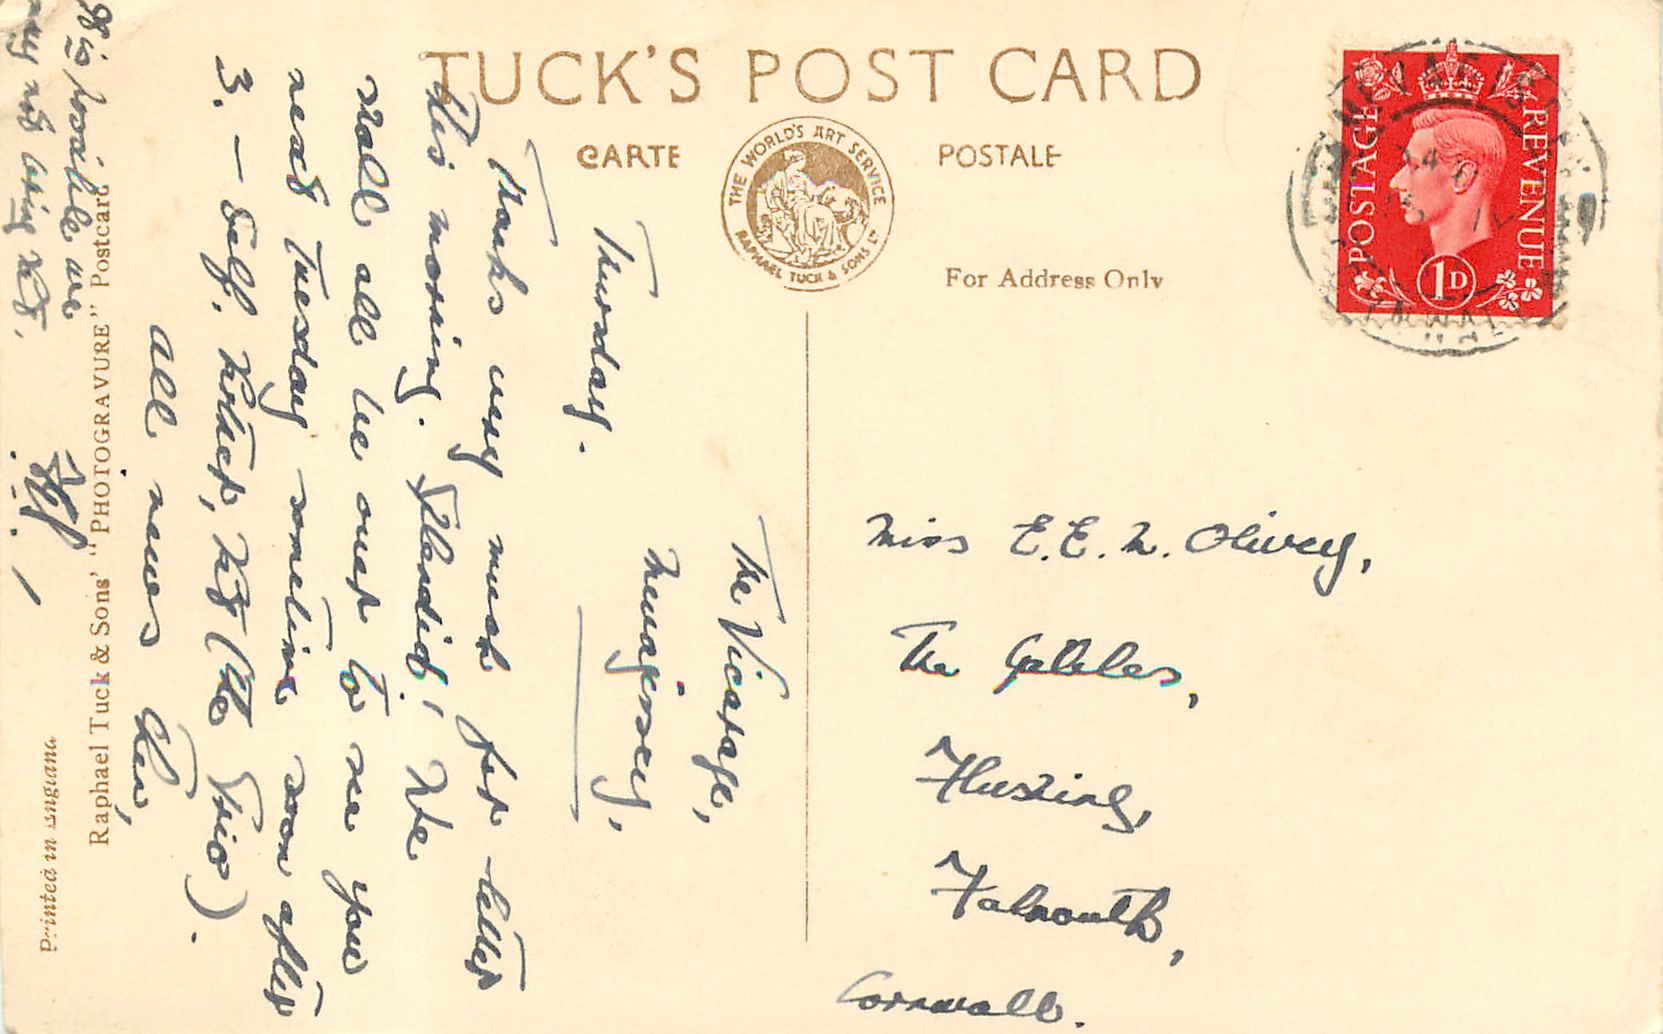 TUCK'S POST CARD
CARTE POSTALE
THE WORLD'S ART SERVICE
RAPHAEL TUCK & SONS LTD
For Address Only
POSTAGE REVENUE
1D
MEVAGISSEY
CORNWALL
The Vicarage,
Mevagissey,
Thursday.
Thanks very much for letter
this morning. Splendid! We
shall all be over to see you
next Tuesday sometime soon after
3. – Self,
(the trio).
All news then,
is possible are
may not bring
Miss E. E. M. Olivey,
The Gables,
Flushing,
Falmouth,
Cornwall.
Raphael Tuck & Sons' "PHOTOGRAVURE" Postcard
Printed in England